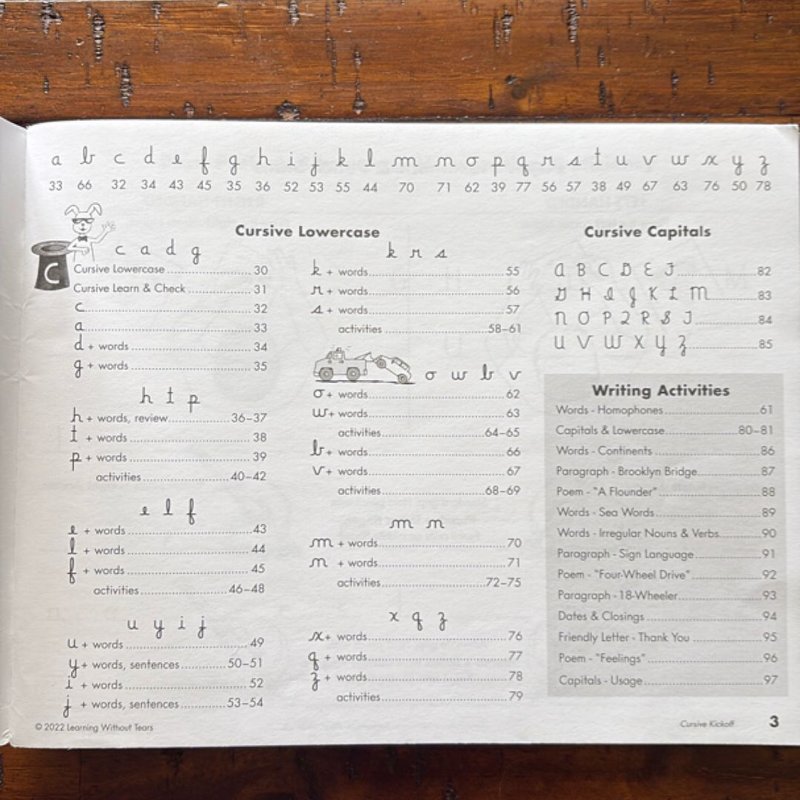 a b c d e f g h i j k l m n o p q r s t u v w x y z
33 66 32 34 43 45 35 36 52 53 55 44 70 71 62 39 77 56 57 38 49 67 63 76 50 78
Cursive Lowercase
C
c a d g
Cursive Lowercase 30
Cursive Learn & Check 31
c 32
a 33
d + words 34
g + words 35
h t p
h + words, review 36–37
t + words 38
p + words 39
activities 40–42
e l f
e + words 43
l + words 44
f + words 45
activities 46–48
u y i j
u + words 49
y + words, sentences 50–51
i + words 52
j + words, sentences 53–54
k r s
k + words 55
r + words 56
s + words 57
activities 58–61
o w b v
o + words 62
w + words 63
activities 64–65
b + words 66
v + words 67
activities 68–69
m n
m + words 70
n + words 71
activities 72–75
x q z
x + words 76
q + words 77
z + words 78
activities 79
Cursive Capitals
A B C D E F 82
G H I J K L M 83
N O P Q R S T 84
U V W X Y Z 85
Writing Activities
Words - Homophones 61
Capitals & Lowercase 80–81
Words - Continents 86
Paragraph - Brooklyn Bridge 87
Poem - "A Flounder" 88
Words - Sea Words 89
Words - Irregular Nouns & Verbs 90
Paragraph - Sign Language 91
Poem - "Four-Wheel Drive" 92
Paragraph - 18-Wheeler 93
Dates & Closings 94
Friendly Letter - Thank You 95
Poem - "Feelings" 96
Capitals - Usage 97
© 2022 Learning Without Tears
Cursive Kickoff 3